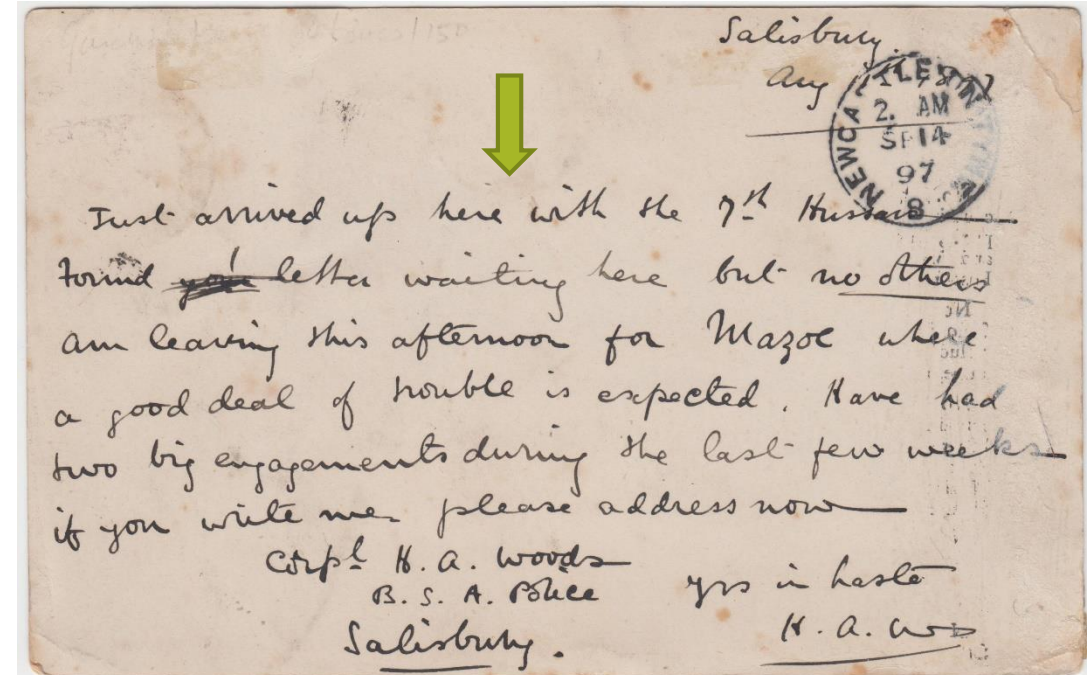 Salisbury.
Aug
NEWCASTLE ON TYNE
2. AM
SP 14
97
8
Just arrived up here with the 7th Hussars
found your letter waiting here but no others
am leaving this afternoon for Mazoe where
a good deal of trouble is expected. Have had
two big engagements during the last few weeks
if you write me please address now
Corpl H. A. Woods
B. S. A. Police
yrs in haste
Salisbury.
H. A. W